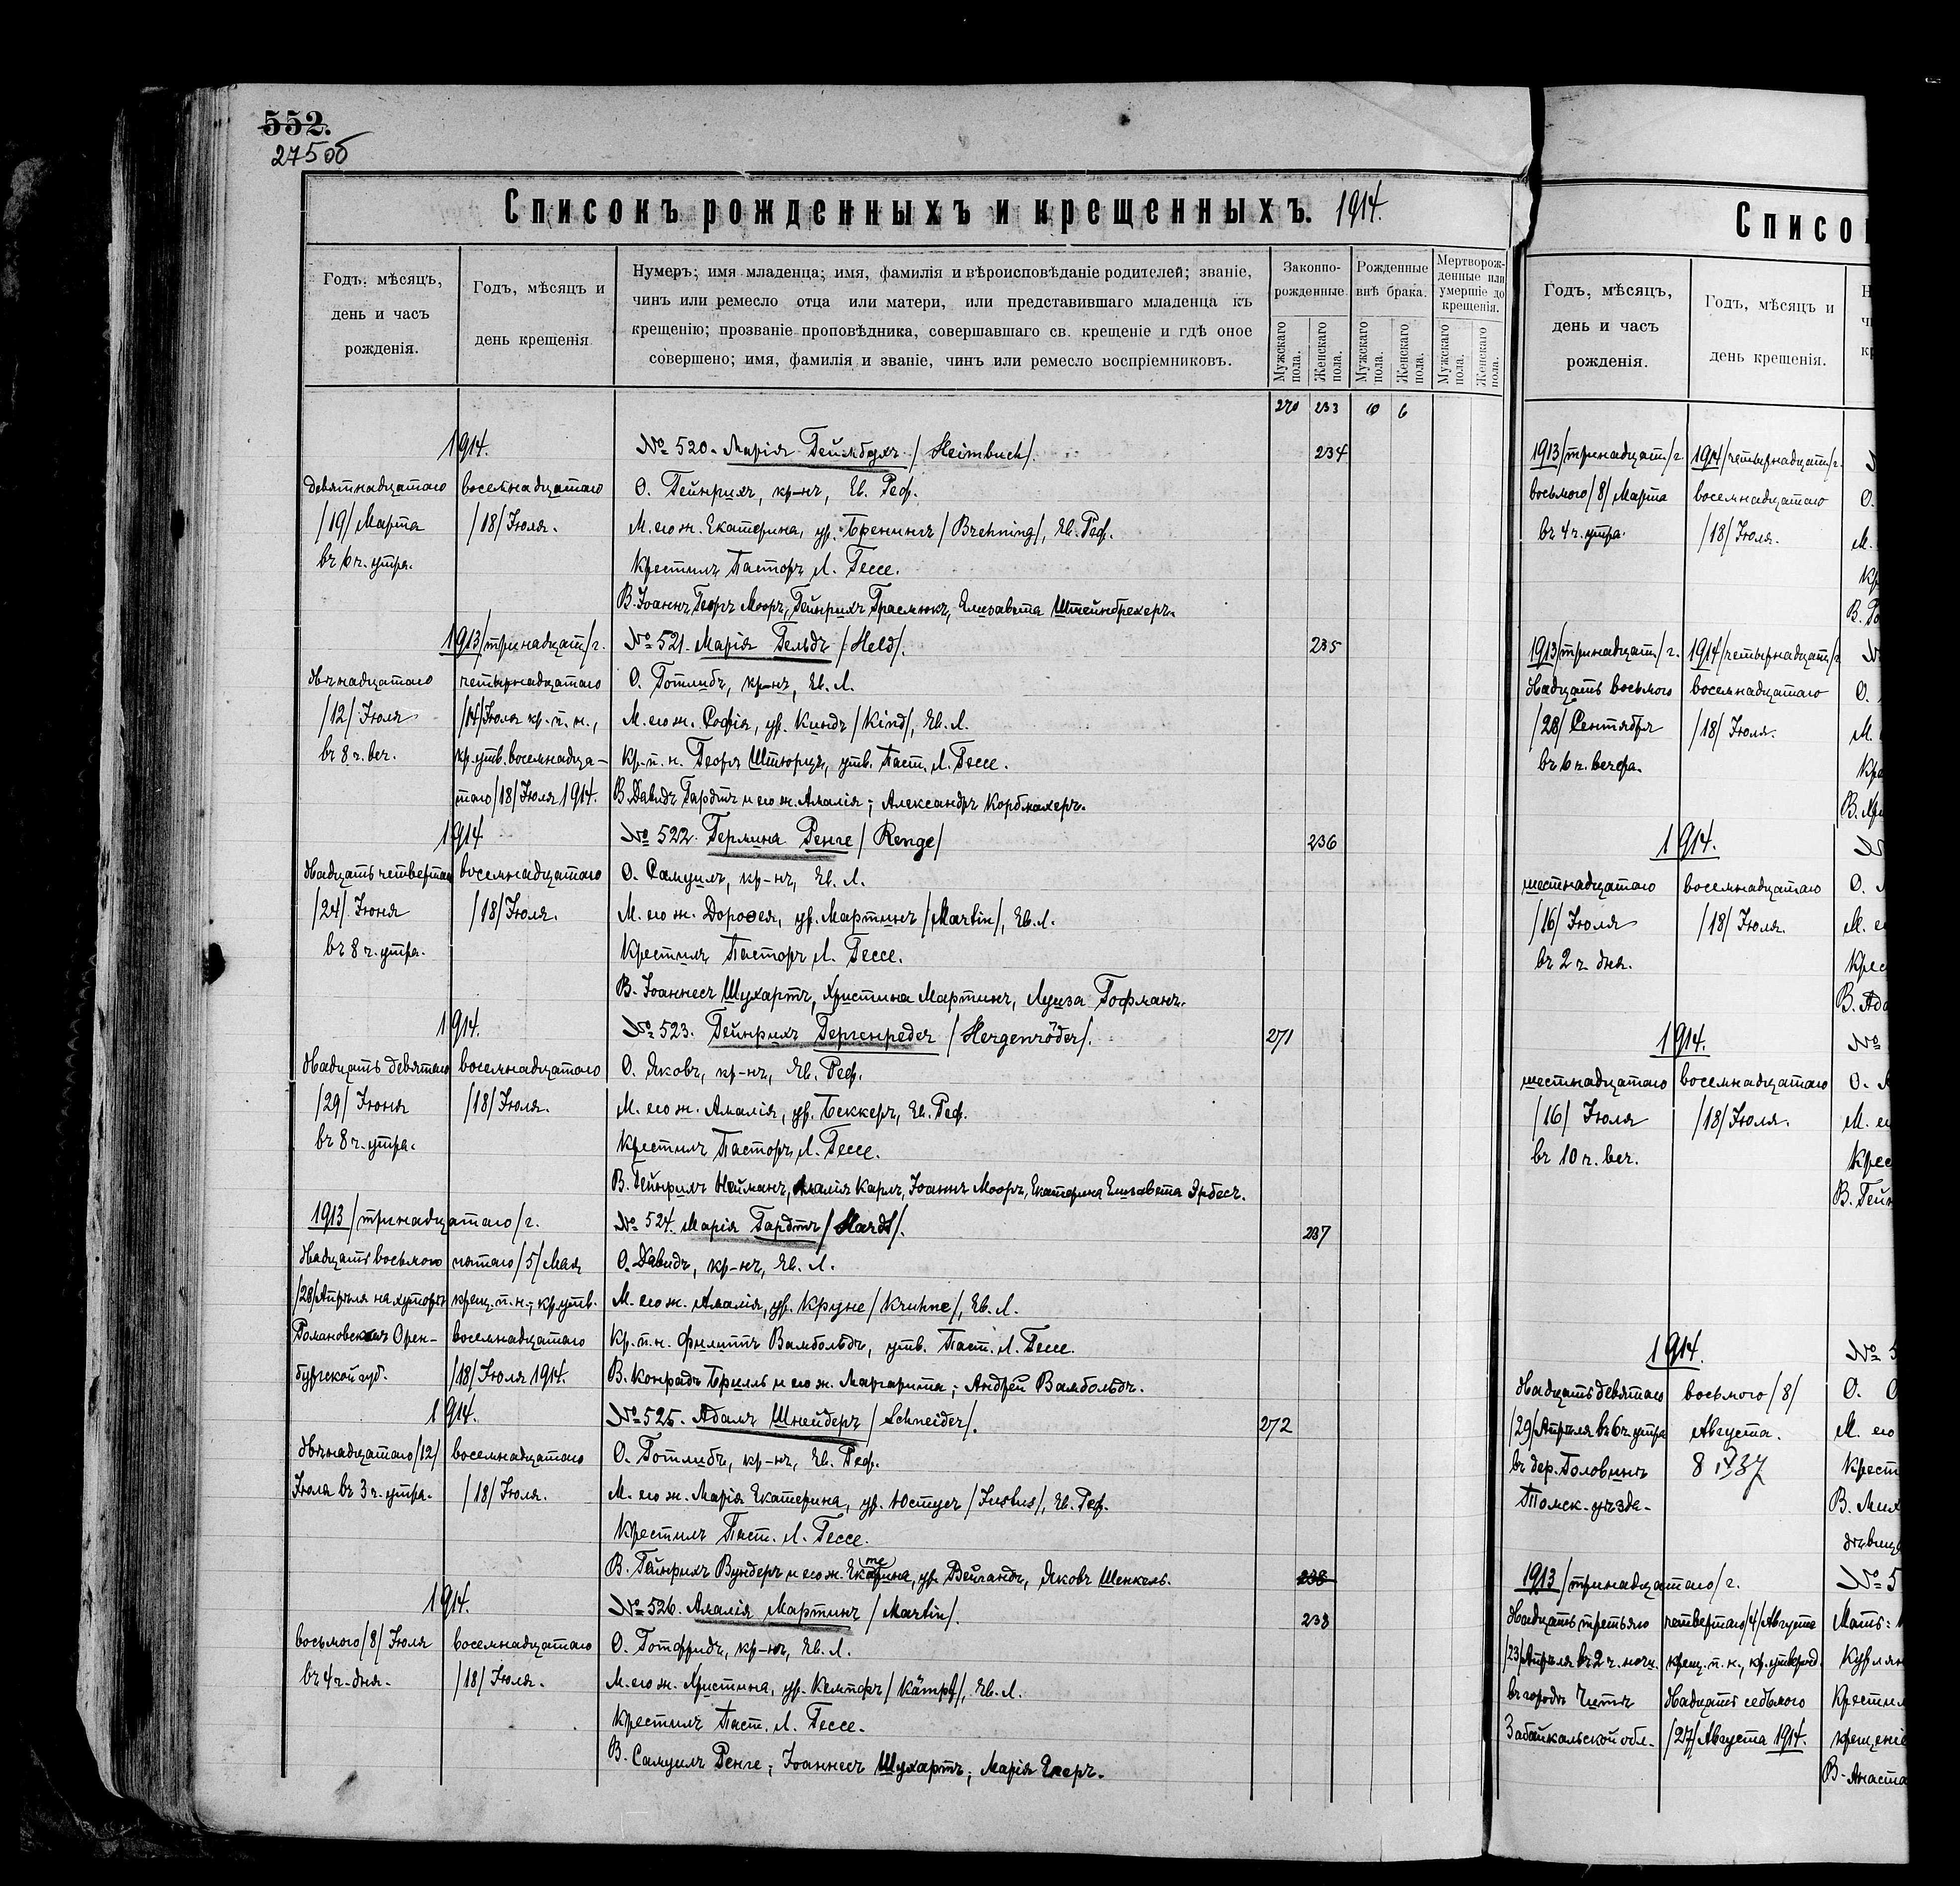 552.
275об
Списокъ рожденныхъ и крещенныхъ. 1914.
Годъ, мѣсяцъ, день и часъ рожденія.
Годъ, мѣсяцъ и день крещенія
Нумеръ; имя младенца; имя, фамилія и вѣроисповѣданіе родителей; званіе,
чинъ или ремесло отца или матери, или представившаго младенца къ
крещенію; прозваніе проповѣдника, совершавшаго св. крещеніе и гдѣ оное
совершено; имя, фамилія и званіе, чинъ или ремесло воспріемниковъ.
Законнорожденные.
Рожденные внѣ брака.
Мертворожденные или умершіе до крещенія.
Мужскаго пола. Женскаго пола. Мужскаго пола. Женскаго пола. Мужскаго пола. Женскаго пола.
270 233 10 6
1914. № 520. Марія Геймбухъ /Heimbuch/. 234
девятнадцатаго восемнадцатаго О. Гейнрихъ, кр-нъ, Ев. Реф.
/19/ Марта /18/ Іюля. М. его ж. Екатерина, ур. Бренингъ /Brehning/, Ев. Реф.
въ 6 ч. утра. Крестилъ Пасторъ Л. Гессе.
В. Іоаннъ Георгъ Мооръ, Гейнрихъ Прасмюкъ, Елизавета Штейнбрехеръ.
1913 /тринадцат/ г. № 521. Марія Гельдъ /Held/. 235
двѣнадцатаго четырнадцатаго О. Готлибъ, кр-нъ, Ев. Л.
/12/ Іюля /14/ Іюля кр. п. н., М. его ж. Софія, ур. Киндъ /Kind/, Ев. Л.
въ 8 ч. веч. кр. утв. восемнадца- Кр. п. н. Георгъ Штюрцъ, утв. Паст. Л. Гессе.
таго /18/ Іюля 1914. В. Давидъ Гардтъ и его ж. Амалія; Александръ Корбмахеръ.
1914 № 522. Гермина Ренге /Renge/ 236
двадцать четвертаго восемнадцатаго О. Самуилъ, кр-нъ, Ев. Л.
/24/ Іюня /18/ Іюля. М. его ж. Доровея, ур. Мартинъ /Martin/, Ев. Л.
въ 8 ч. утра. Крестилъ Пасторъ Л. Гессе.
В. Іоаннесъ Шухартъ, Христина Мартинъ, Луиза Гофманъ.
1914. № 523. Гейнрихъ Гергенредеръ /Hergenröder/. 271
двадцать девятаго восемнадцатаго О. Яковъ, кр-нъ, Ев. Реф.
/29/ Іюня /18/ Іюля. М. его ж. Амалія, ур. Беккеръ, Ев. Реф.
въ 8 ч. утра. Крестилъ Пасторъ Л. Гессе.
В. Гейнрихъ Нейманъ, Амалія Карлъ, Іоаннъ Мооръ, Екатерина Елизавета Эрбесъ.
1913 /тринадцатаго/ г. № 524. Марія Гардтъ /Hardt/. 237
двадцать восьмого пятаго /5/ Мая О. Давидъ, кр-нъ, Ев. Л.
/28/ Апрѣля на хуторѣ крещ. п. н., кр. утв. М. его ж. Амалія, ур. Круне /Kruhne/, Ев. Л.
Романовскомъ Орен- восемнадцатаго Кр. п. н. Филиппъ Вамбольдъ, утв. Паст. Л. Гессе.
бургской губ. /18/ Іюля 1914. В. Конрадъ Брилль и его ж. Маргарита; Андрей Вамбольдъ.
1914. № 525. Адамъ Шнейдеръ /Schneider/. 272
двѣнадцатаго /12/ восемнадцатаго О. Готлибъ, кр-нъ, Ев. Реф.
Іюля въ 3 ч. утра. /18/ Іюля. М. его ж. Марія Екатерина, ур. Юстусъ /Justus/, Ев. Реф.
Крестилъ Паст. Л. Гессе.
В. Гейнрихъ Вундеръ и его ж. Екатерина, ур. Вейгандъ, Яковъ Шенкель. 238
1914. № 526. Амалія Мартинъ /Martin/. 238
восьмого /8/ Іюля восемнадцатаго О. Готфридъ, кр-нъ, Ев. Л.
въ 4 ч. дня. /18/ Іюля. М. его ж. Христина, ур. Кемпфъ /Kämpf/, Ев. Л.
Крестилъ Паст. Л. Гессе.
В. Самуилъ Ренге; Іоаннесъ Шухартъ; Марія Егеръ.
Списо
Годъ, мѣсяцъ, день и часъ рожденія.
Годъ, мѣсяцъ и день крещенія.
1913 /тринадцат/ г. 1914 /четырнадцат/ г.
восьмого /8/ Марта восемнадцатаго О.
въ 4 ч. утра. /18/ Іюля. М.
Кр
1913 /тринадцат/ г. 1914 /четырнадцат/ г. №
двадцать восьмого восемнадцатаго О.
/28/ Сентября /18/ Іюля. М.
въ 6 ч. вечера. Кре
В. Хри
1914. №
шестнадцатаго восемнадцатаго О.
/16/ Іюля /18/ Іюля. М. е
въ 2 ч. дня. Крес
В. Ада
1914. №
шестнадцатаго восемнадцатаго О.
/16/ Іюля /18/ Іюля. М. е
въ 10 ч. веч. Крес
В. Гейн
1914. № 5
двадцать девятаго восьмого /8/ О.
/29/ Апрѣля въ 6 ч. утра Августа. М. его
въ дер. Головинъ Крест
Томск. уѣзда. В. Мих
дѣвиц
1913 /тринадцатаго/ г. № 5
двадцать третьяго четвертаго /4/ Августа Мать:
/23/ Апрѣля въ 2 ч. ночи. крещ. п. н., кр. утвержд. Курлян
въ городѣ Читѣ двадцать седьмого Крестил
Забайкальской обл. /27/ Августа 1914. крещеніе
В. Анаста